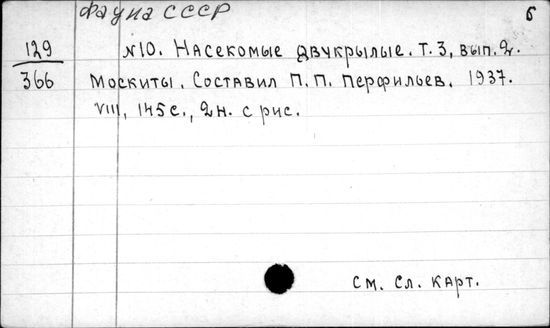 Фауна СССР
6
129
366
N10. Насекомые двукрылые. Т. 3, вып. 2.
Москиты. Составил П. П. Перфильев. 1937.
VIII, 145 с., 2 н. с рис.
См. сл. карт.